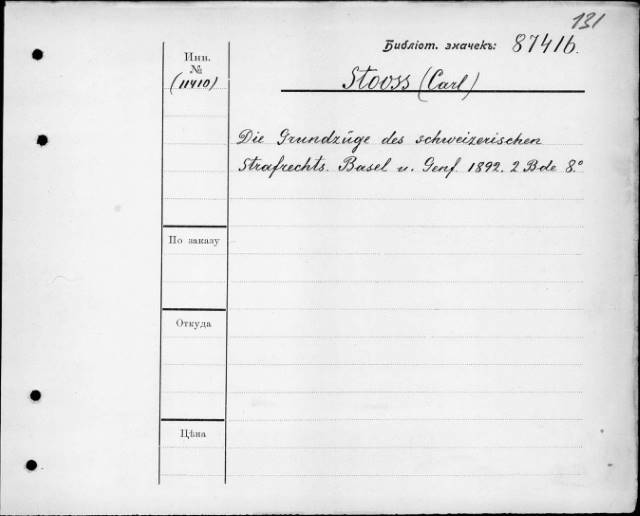 131
Библіот. значекъ: 87416.
Инв.
№
(11410)
Stooss (Carl)
Die Grundzüge des schweizerischen
Strafrechts. Basel u. Genf. 1892. 2 Bde 8.°
По заказу
Откуда
Цѣна